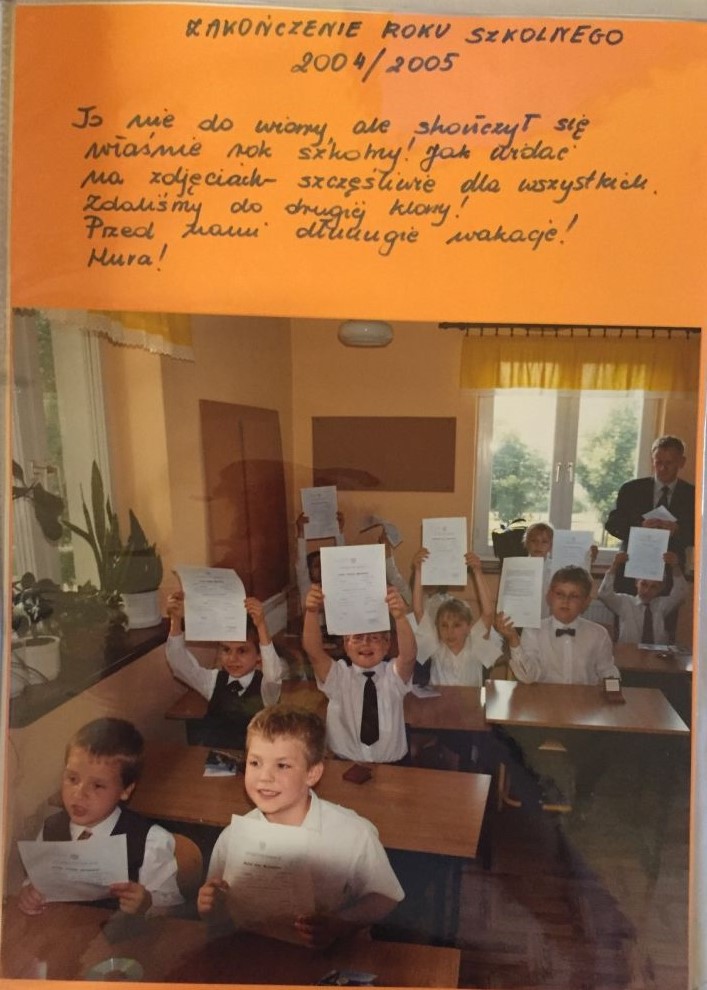 ZAKOŃCZENIE ROKU SZKOLNEGO
2004/2005
To nie do wiary, ale skończył się
właśnie rok szkolny! Jak widać
na zdjęciach - szczęśliwie dla wszystkich.
Zdaliśmy do drugiej klasy!
Przed nami dłuuugie wakacje!
Hura!